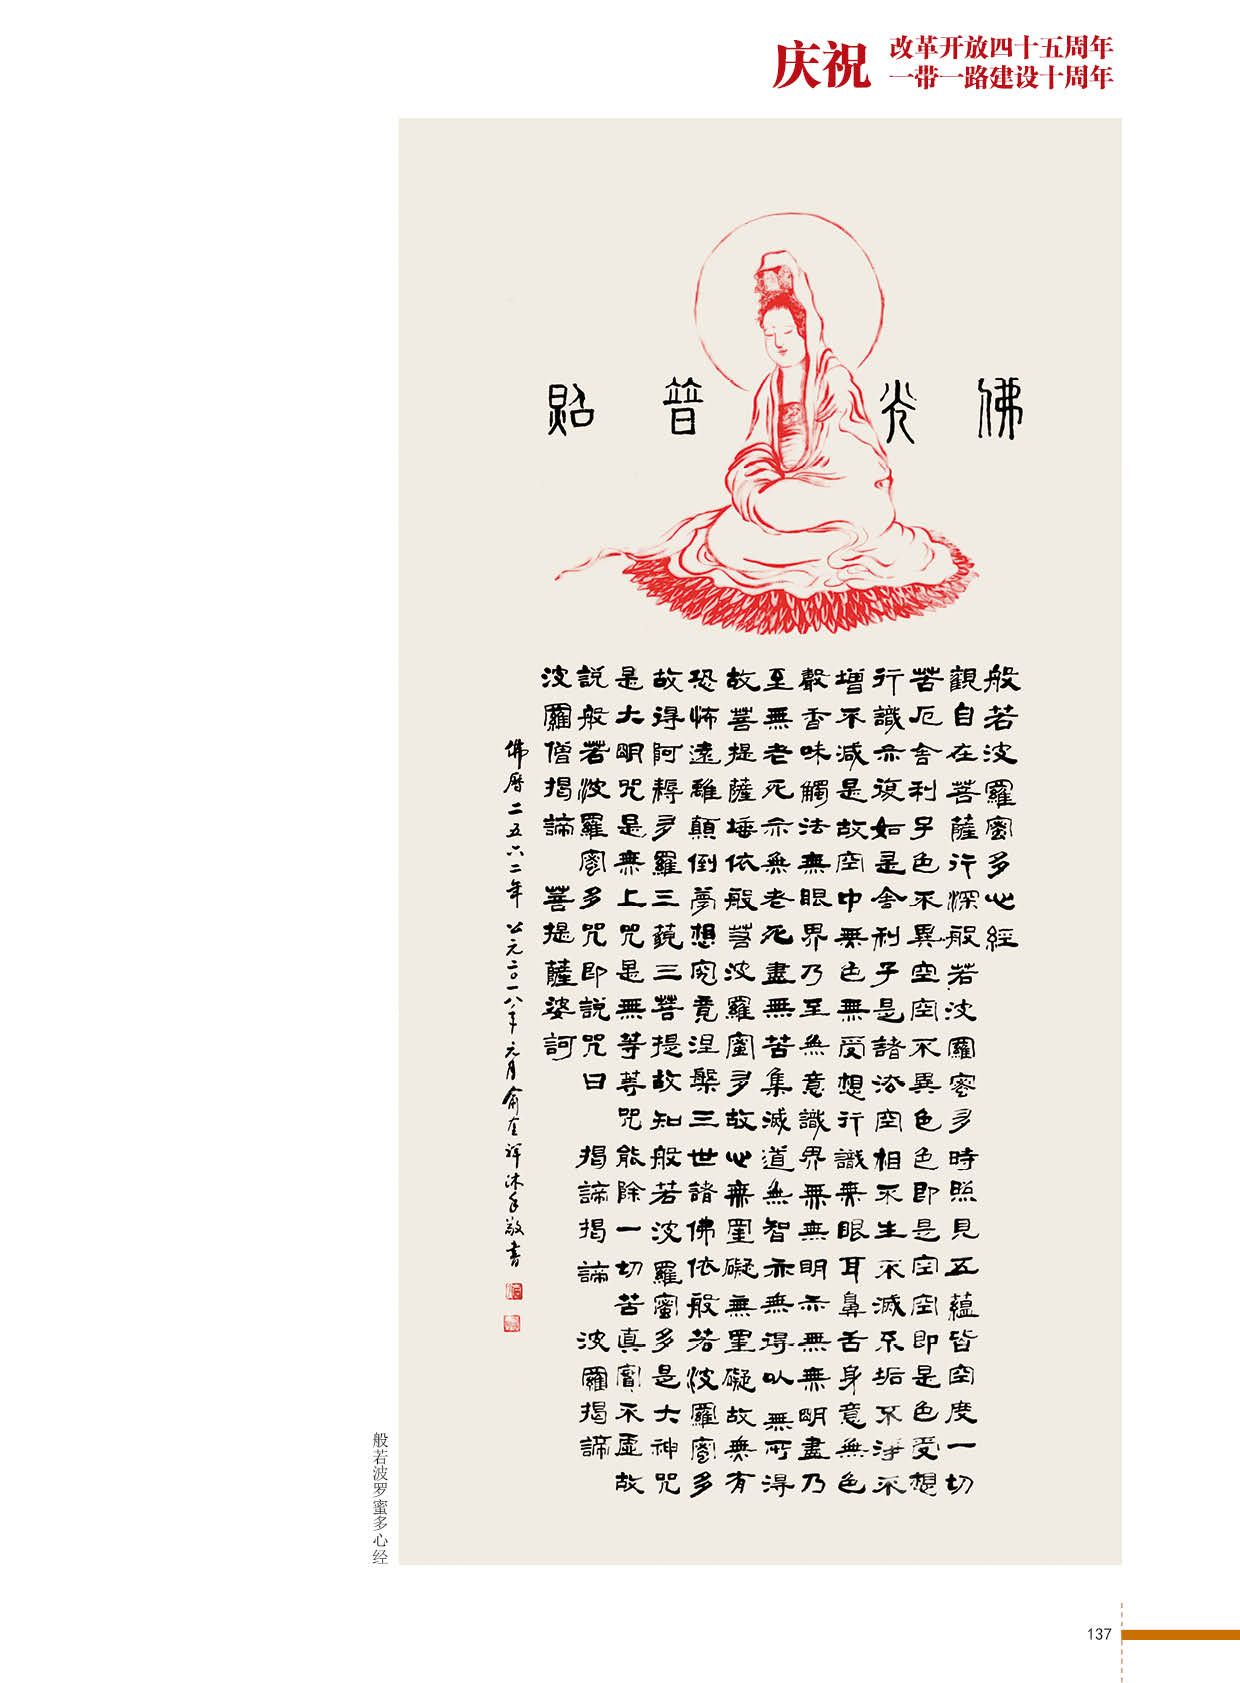 庆祝
改革开放四十五周年
一带一路建设十周年
佛光普照
般若波羅蜜多心經
觀自在菩薩行深般若波羅蜜多時照見五蘊皆空度一切
苦厄舍利子色不異空空不異色色即是空空即是色受想
行識亦復如是舍利子是諸法空相不生不滅不垢不淨不
增不減是故空中無色無受想行識無眼耳鼻舌身意無色
聲香味觸法無眼界乃至無意識界無無明亦無無明盡乃
至無老死亦無老死盡無苦集滅道無智亦無得以無所得
故菩提薩埵依般若波羅蜜多故心無罣礙無罣礙故無有
恐怖遠離顛倒夢想究竟涅槃三世諸佛依般若波羅蜜多
故得阿耨多羅三藐三菩提故知般若波羅蜜多是大神咒
是大明咒是無上咒是無等等咒能除一切苦真實不虛故
說般若波羅蜜多咒即說咒曰 揭諦揭諦 波羅揭諦
波羅僧揭諦 菩提薩婆訶
佛曆二五六二年 公元二〇一八年元月俞祥沐手敬書
般若波罗蜜多心经
137